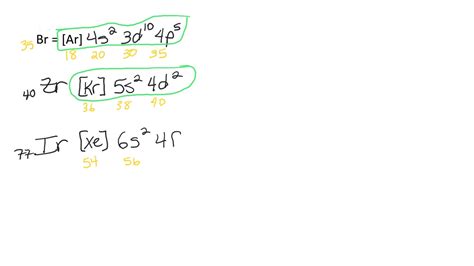 35 Br = [Ar] 4s² 3d¹⁰ 4p⁵
18 20 30 35
40 Zr [Kr] 5s² 4d²
36 38 40
77 Ir [Xe] 6s² 4f
54 56